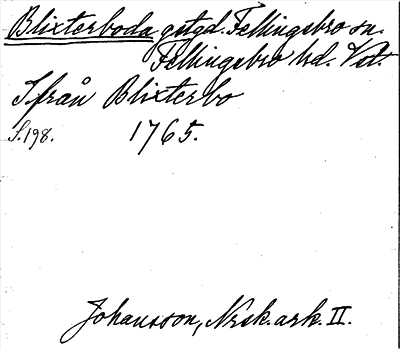 Blixterboda gstgd. Fellingsbro sn.
Fellingsbro hd. Vstm.
Ifrån Blixterbo
S. 198. 1765.
Johansson, Nrsk. ark. II.